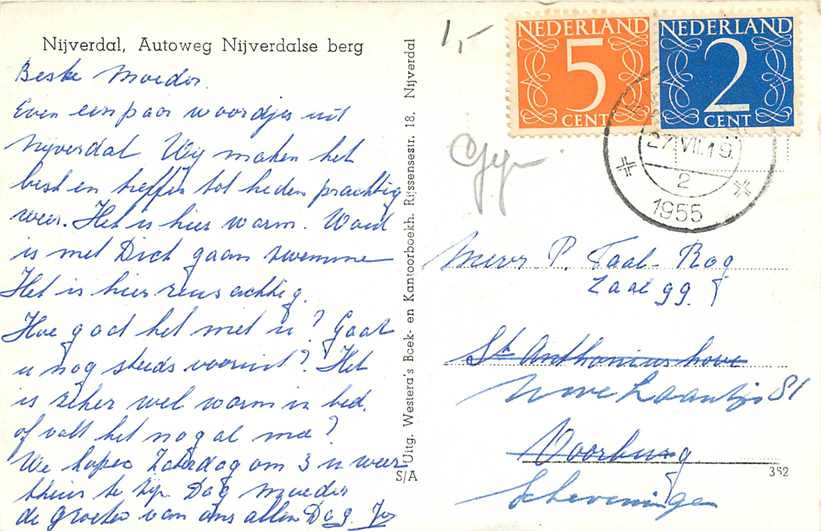 Nijverdal, Autoweg Nijverdalse berg
Beste Moeder.
Even een paar woordjes uit
Nijverdal Wij maken het
best en treffen tot heden prachtig
weer. Het is hier warm. Ward
is met Dick gaan zwemme
Het is hier reus achtig.
Hoe gad het met u? Gaat
u nog steeds vooruit? Het
is zeker wel warm in bed.
of valt het nog al mee?
We hopen Zaterdag om 3 u weer
thuis te zijn. Dag Moeder
de groeten van ons allen Dag.
Uitg. Westera's Boek- en Kantoorboekh. Rijssensestr. 18, Nijverdal
S/A
1,-
NEDERLAND
5
CENT
NEDERLAND
2
CENT
27.VII.19.
2
1955
Mevr P. Taal-Rog
Zaal 99
St Anthoniushove
81
Voorburg
Scheveningen
352